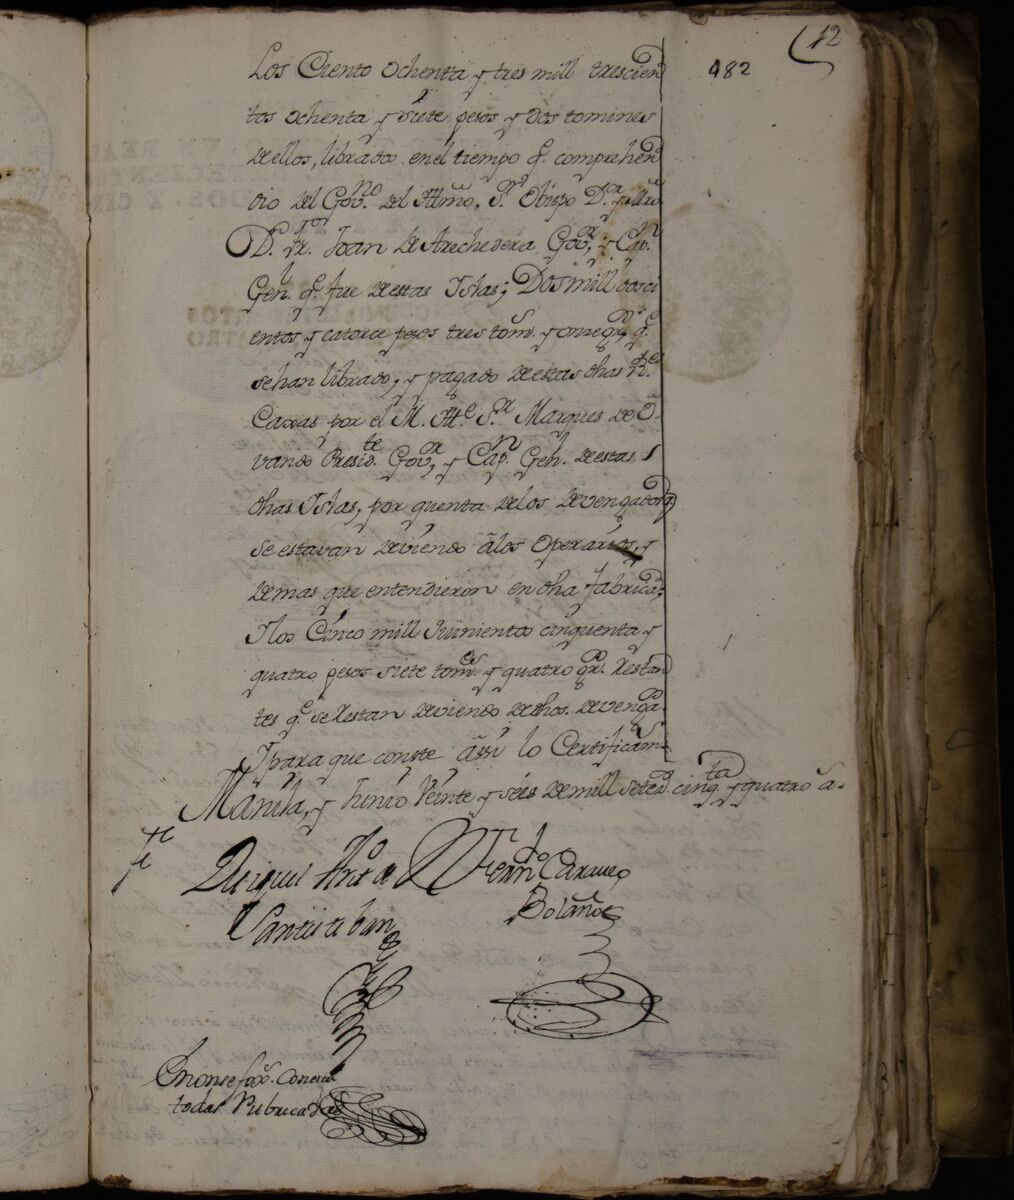 12
482
Los Ciento ochenta y tres mill trescien
tos ochenta y siete pesos y dos tomines
de ellos, librado en el tiempo q.e comprehen
dio del Gov.no del Illmo. S.or Obispo D.r y Mro
D. fr. Joan de Arechedera Gov.or y Cap.n
Gen.l q.e fue de estas Islas; Dos mill dosci
entos y catorce pesos tres tom.s y onze gr.s q.e
se han librado, y pagado de estas dhas R.es
Caxas por el M. Ill.e S.or Marques de O
vando Presid.te Gov.or y Cap.n Gen.l de estas
dhas Islas, por quenta de los devengados q
se estavan deviendo à los Operarios, y
demas que entendieron en dha fabrica;
Y los Cinco mill quinientos cinquenta y
quatro pesos siete tom.es y quatro gr.s restan
tes q.e se restan deviendo de dhos devenga.dos
Y para que conste assi lo Certificam.s
Manila, y Junio Veinte y seis de mill seteci.s cinq.ta y quatro a.s
Miguel Ant.o de
Santistevan
Fern.do Carauco
Bolaños
En onse fox.s Con esta
todas Rubricadas